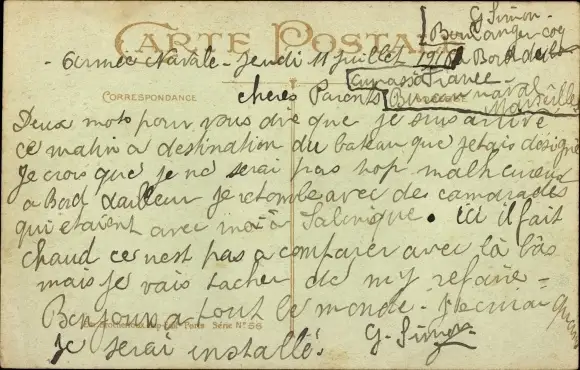 G. Simon
Boulanger coq
CARTE POSTALE
Armée Navale - Jeudi 11 juillet 1918 a Bord du
Cuirassé France
CORRESPONDANCE
chers Parents Bureau naval
Marseille
Deux mots pour vous dire que je suis arrivé
ce matin a destination du bateau que jetais désigné
Je crois que je ne serai pas trop malheureux
a Bord dailleur je retombe avec des camarades
qui etaient avec moi a Salonique. ici il fait
chaud ce nest pas a comparer avec là bàs
mais je vais tacher de my refaire -
Bonjour a tout le monde - Jecrirai quand
Paris Série N° 56
je serai installé. G. Simon